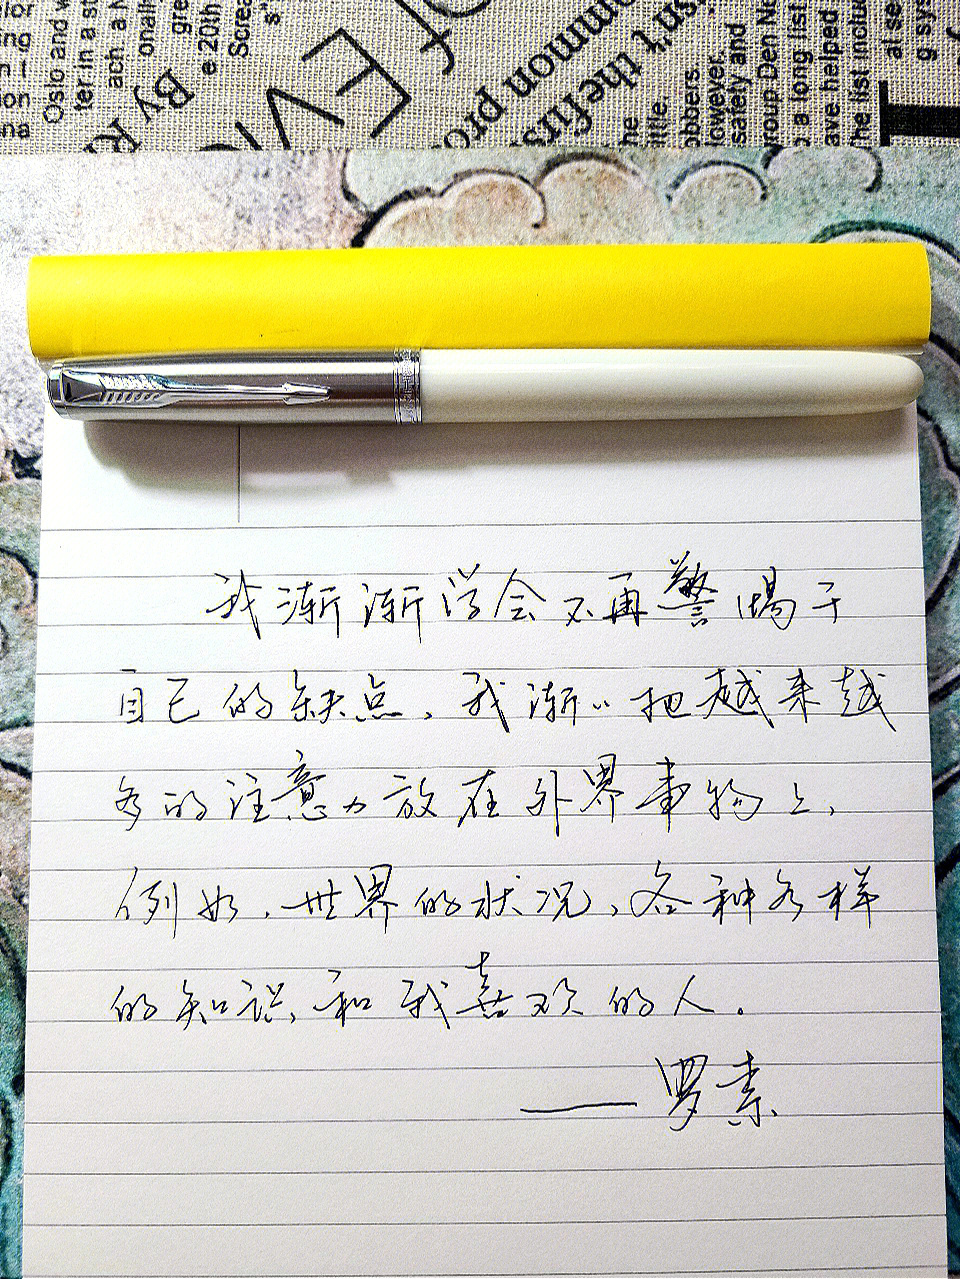 Oslo and w
ter in a st
ach a N
onally
e 20th
Screa
By K
of
EVI
mmon pro
sn't the firs
obbers.
safety and
group Den Ne
a long list
ave helped
the list includ
al se
g sys
我渐渐学会不再警惕于
自己的缺点,我渐〃把越来越
多的注意力放在外界事物上,
例如,世界的状况,各种各样
的知识,和我喜欢的人。
——罗素